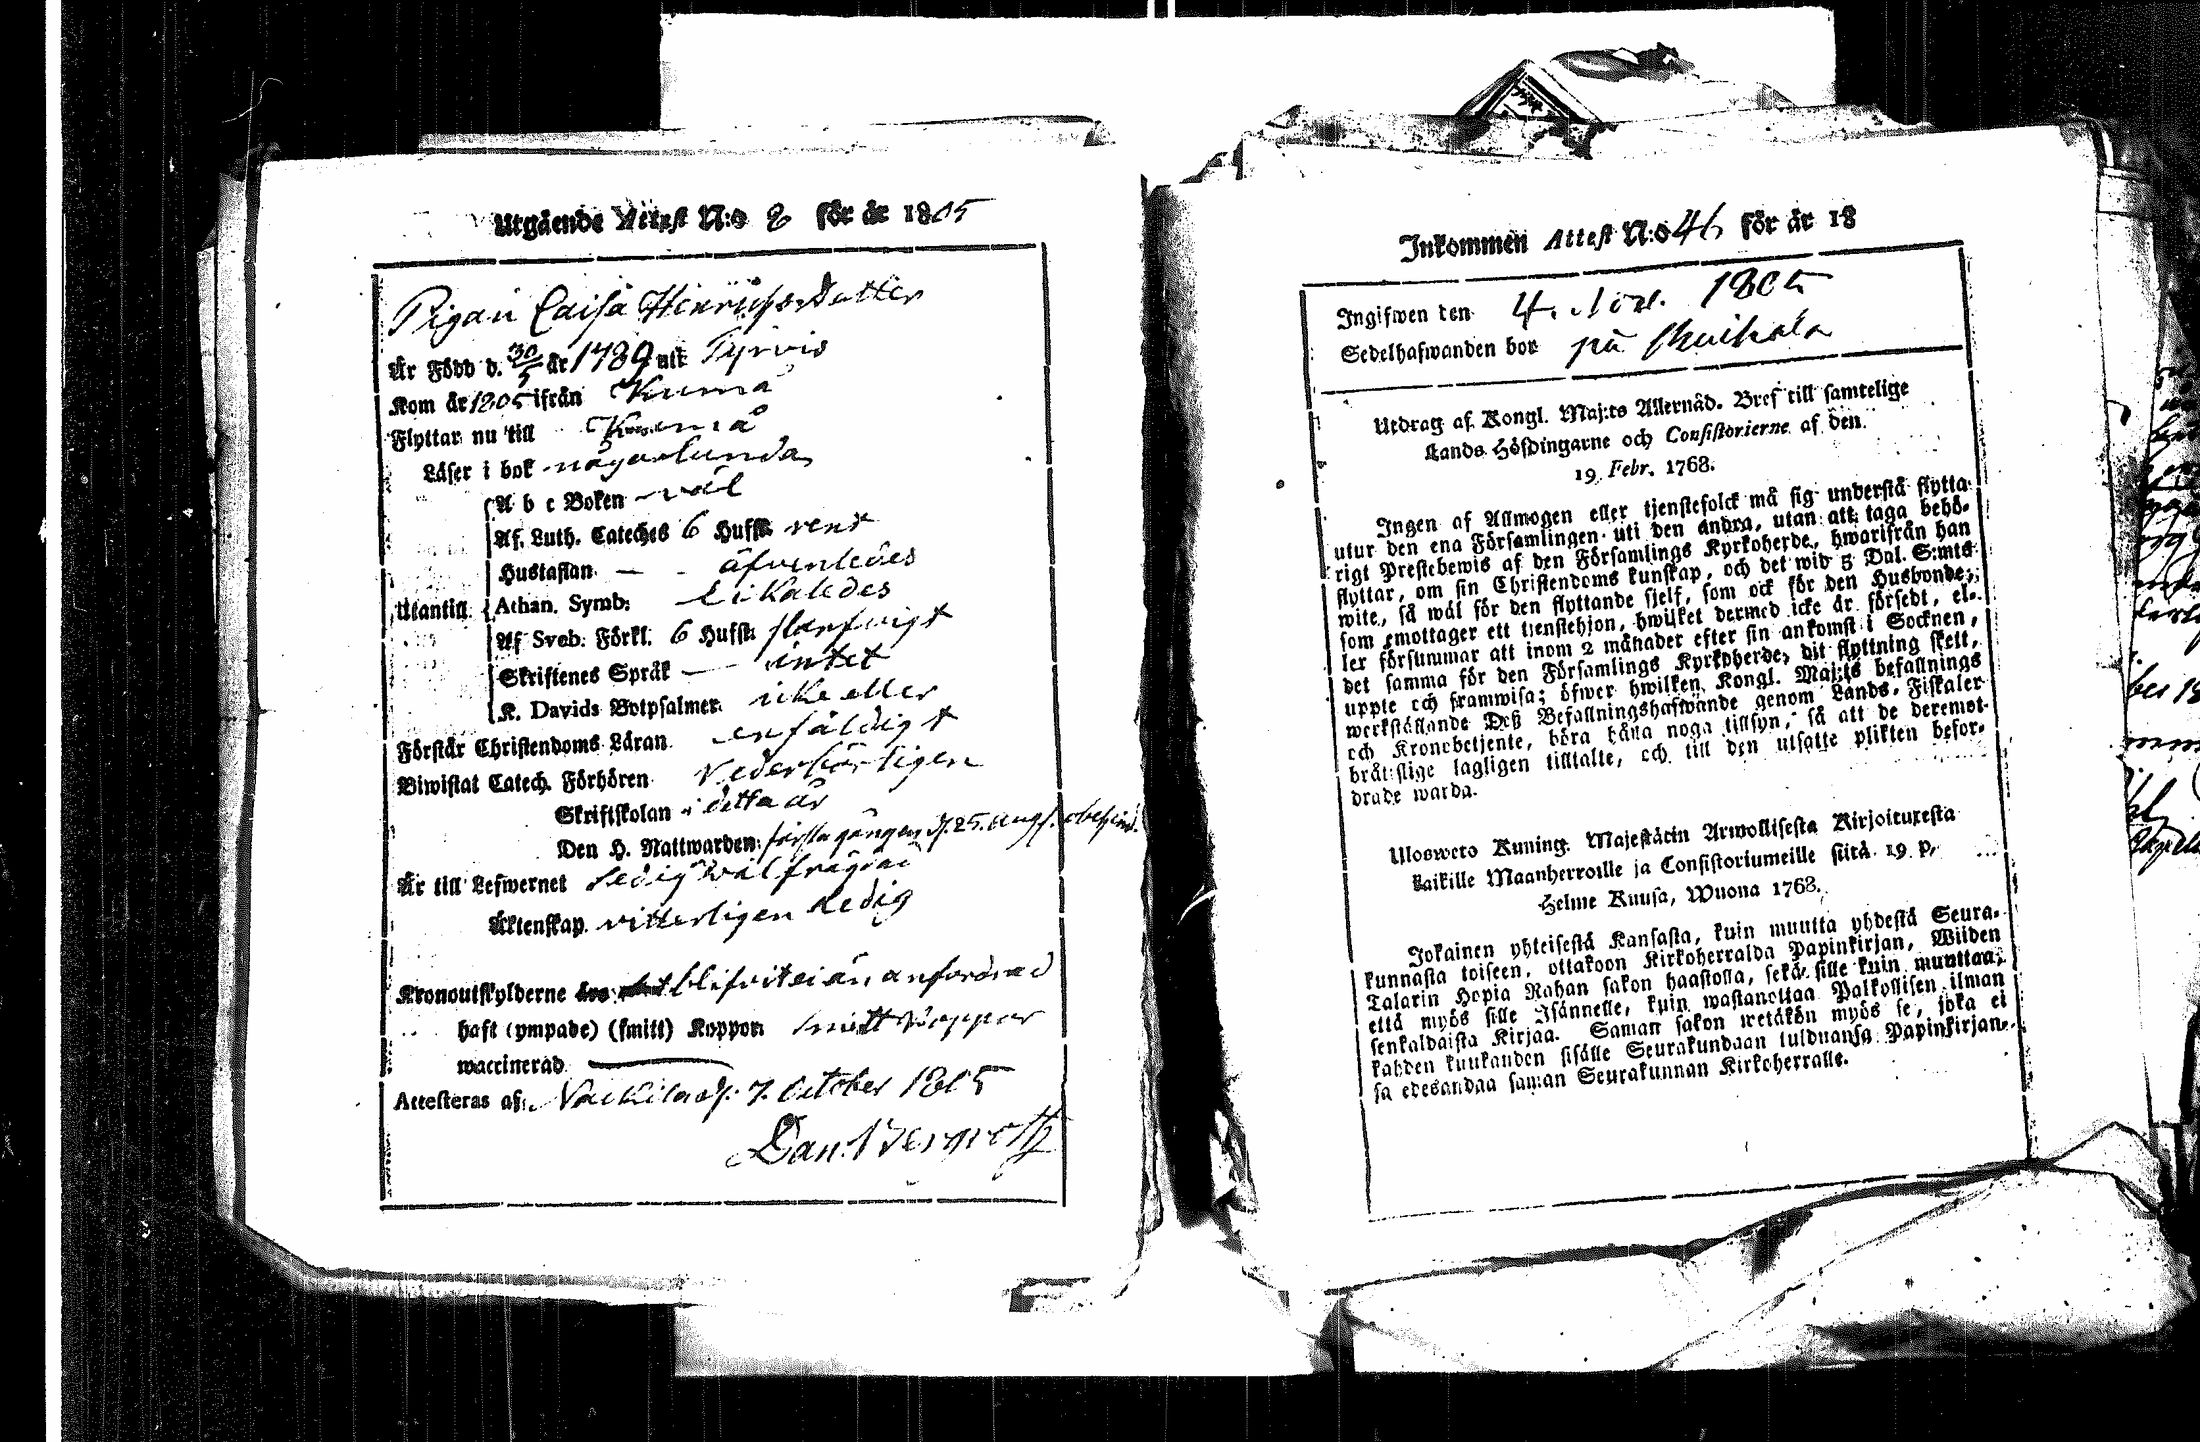 Utgående Attest N:o 8 för år 1805
Pigan Caisa Henrichsdotter
Är Född d. 30/5 år 1789 uti Tyrvis
Kom år 1805 ifrån Kumå
Flyttar nu till Kumå
Läser i bok någorlunda
A b c Boken väl
Af. Luth. Cateches 6 Hufst. rent
Hustaflan äfvenledes
Utantill Athan. Symb: Likaledes
Af Sveb. Förkl. 6 Hufst.
Skriftenes Språk intet
K. Davids Botpsalmer icke eller
Förstår Christendoms Läran enfäldigt
Biwistat Catech. Förhören Vederbörligen
Skriftskolan i detta år
Den H. Nattwarden första gången d. 25. Aug.
Är till Lefwernet ledig wälfrägdad
Äktenskap vitterligen Ledig
Kronoutskylderne blifvit ei än anfordrad
haft (ympade) (smitt) Koppor smitt koppor
waccinerad
Attesteras af d. 7. October 1805
Dan. Bergroth
Inkommen Attest N:o 46 för år 18
Ingifwen den 4. Nov. 1805
Sedelhafwanden bor på
Utdrag af Kongl. Maj:ts Allernåd. Bref till samtelige
Lands Höfdingarne och Consistorierne af den
19 Febr. 1768.
Ingen af Allmogen eller tjenstefolck må sig understå flytta
utur den ena Församlingen uti den andra, utan att taga behö-
rigt Prestebewis af den Församlings Kyrkoherde, hwarifrån han
flyttar, om sin Christendoms kunskap, och det wid 5 Dal. S:mts
wite, så wäl för den flyttande sjelf, som ock för den Husbonde,
som emottager ett tjenstehjon, hwilket dermed icke är försedt, el-
ler försummar att inom 2 månader efter sin ankomst i Socknen,
det samma för den Församlings Kyrkoherde, dit flyttning skett,
uppte och framwisa; öfwer hwilken Kongl. Maj:ts befallnings
werkställande Deß Befallningshafwande genom Lands-Fiskaler
och Kronobetjente, böra hålla noga tillsyn, så att de deremot-
bråtslige lagligen tilltalte, och till den utsatte plikten befor-
drade warda.
Ulosweto Kuning. Majestätin Armollisesta Kirjoituxesta
kaikille Maanherroille ja Consistoriumeille siitä 19 p.
Helme Kuusa, Wuona 1768.
Jokainen yhteisestä Kansasta, kuin muutta yhdestä Seura-
kunnasta toiseen, ottakoon Kirkoherralda Papinkirjan, Wiiden
Talarin Hopia Rahan sakon haastolla, sekä sille kuin muuttaa,
että myös sille Isännelle, kuin wastanottaa Palkollisen ilman
senkaldaista Kirjaa. Saman sakon wetäkön myös se, joka ei
kahden kuukauden sisälle Seurakundaan tulduansa Papinkirjan-
sa edesandaa saman Seurakunnan Kirkoherralle.